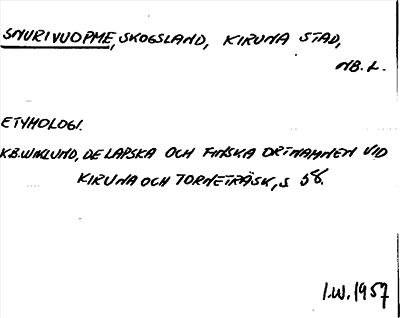 SNURIVUOPME, SKOGSLAND, KIRUNA STAD,
NB. L.
ETYMOLOGI.
K.B. WIKLUND, DE LAPSKA OCH FINSKA ORTNAMNEN VID
KIRUNA OCH TORNETRÄSK, S 58.
I.W. 1957